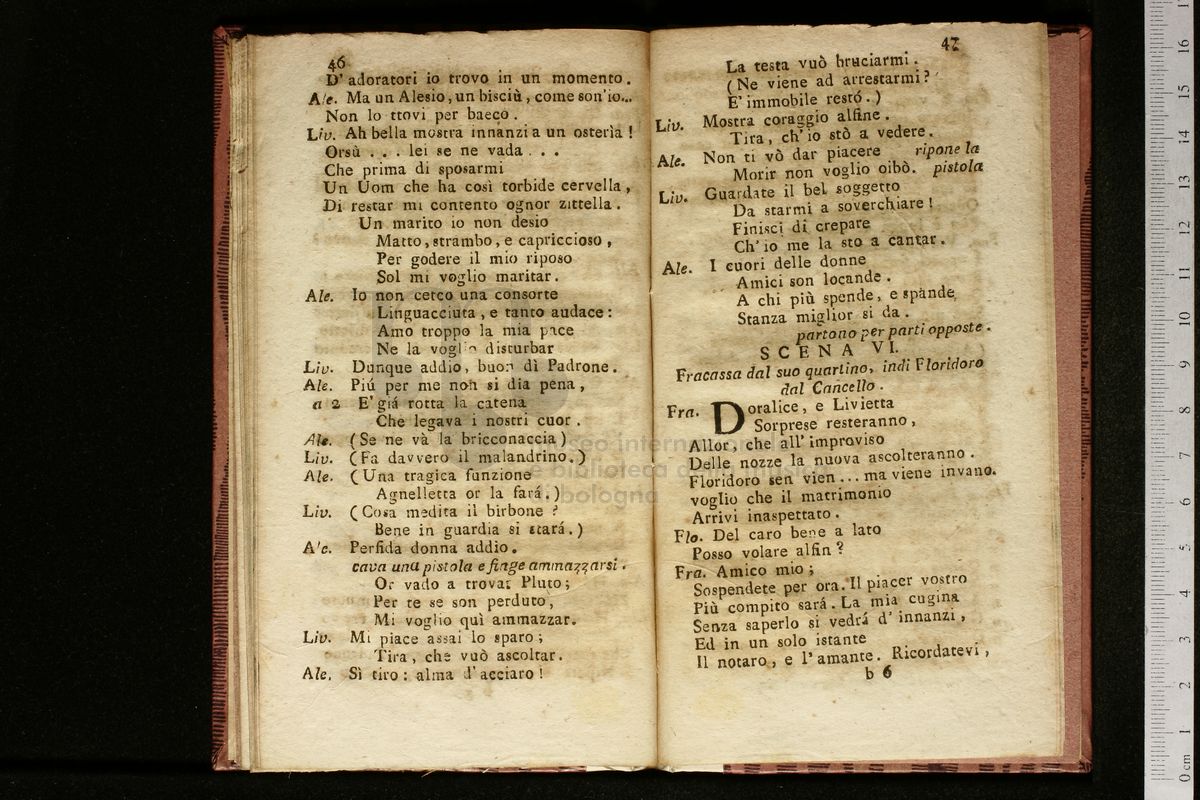 46
D' adoratori io trovo in un momento.
Ale. Ma un Alesio, un bisciù, come son' io...
Non lo ttovi per baeço.
Liv. Ah bella mostra innanzi a un osterìa !
Orsù . . . lei se ne vada . . .
Che prima di sposarmi
Un Uom che ha così torbide cervella,
Di restar mi contento ognor zittella.
Un marito io non desio
Matto, strambo, e capriccioso,
Per godere il mio riposo
Sol mi voglio maritar.
Ale. Io non cerco una consorte
Linguacciuta, e tanto audace:
Amo troppo la mia pace
Ne la voglio disturbar
Liv. Dunque addio, buon dì Padrone.
Ale. Piú per me non si dia pena,
a 2 E' giá rotta la catena
Che legava i nostri cuor.
Ale. (Se ne và la bricconaccia)
Liv. (Fa davvero il malandrino.)
Ale. (Una tragica funzione
Agnelletta or la fará.)
Liv. (Cosa medita il birbone ?
Bene in guardia si stará.)
Ale. Perfida donna addio.
cava una pistola e finge ammazzarsi.
Or vado a trovar Pluto;
Per te se son perduto,
Mi voglio quì ammazzar.
Liv. Mi piace assai lo sparo;
Tira, che vuò ascoltar.
Ale. Sì tiro: alma d' acciaro !
47
La testa vuò bruciarmi.
(Ne viene ad arrestarmi?
E' immobile restó.)
Liv. Mostra coraggio alfine.
Tira, ch' io stò a vedere.
Ale. Non ti vò dar piacere ripone la
Morir non voglio oibò. pistola
Liv. Guardate il bel soggetto
Da starmi a soverchiare !
Finisci di crepare
Ch' io me la sto a cantar.
Ale. I cuori delle donne
Amici son locande.
A chi più spende, e spànde
Stanza miglior si da.
partono per parti opposte.
SCENA VI.
Fracassa dal suo quartino, indi Floridoro
dal Cancello.
Fra. Doralice, e Livietta
Sorprese resteranno,
Allor, che all' improviso
Delle nozze la nuova ascolteranno.
Floridoro sen vien... ma viene invano.
voglio che il matrimonio
Arrivi inaspettato.
Flo. Del caro bene a lato
Posso volare alfin ?
Fra. Amico mio;
Sospendete per ora. Il piacer vostro
Più compito sará. La mia cugina
Senza saperlo si vedrá d' innanzi,
Ed in un solo istante
Il notaro, e l' amante. Ricordatevi,
b 6
museo internazionale
e biblioteca della musica
di bologna
0 cm 1 2 3 4 5 6 7 8 9 10 11 12 13 14 15 16